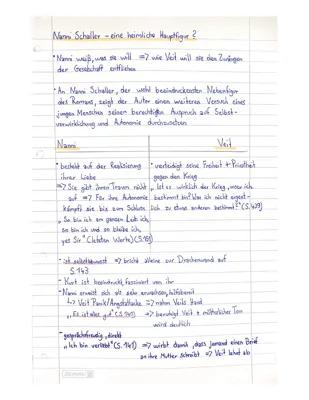 Nanni Schaller – eine heimliche Hauptfigur?
• Nanni weiß, was sie will => wie Veit will sie den Zwängen
der Gesellschaft entfliehen
• An Nanni Schaller, der wohl beeindruckendsten Nebenfigur
des Romans, zeigt der Autor einen weiteren Versuch eines
jungen Menschen seinen berechtigten Anspruch auf Selbst-
verwirklichung und Autonomie durchzusetzen
Nanni Veit
• besteht auf der Realisierung • verteidigt seine Freiheit + Privatheit
ihrer Liebe gegen den Krieg
=> Sie gibt ihren Traum nicht „Ist es wirklich der Krieg, was ich
auf => Für ihre Autonomie bestimmt bin? Was ich nicht
kämpft sie bis zum Schluss ich zu etwas anderem bestimmt?" (S.
„So bin ich am ganzen Leib ich,
so bin ich und so bleibe ich,
yes Sir" (letzten Worte) (S.
• ist selbstbewusst => bricht alleine zur Drachenwand auf
S.143
• Kurt ist beeindruckt, fasziniert von ihr
• Nanni erweist sich als sehr erwachsen, hilfsbereit
↳ Veit Panik/Angstattacke => nahm Veits Hand
„Es ist alles gut" (S. => beruhigt Veit + mütterlicher Ton
wird deutlich
• gesprächsfreudig, direkt
„Ich bin verliebt" (S.141) => wirbt damit, dass jemand einen Brief
an ihre Mutter schreibt => Veit lehnt ab